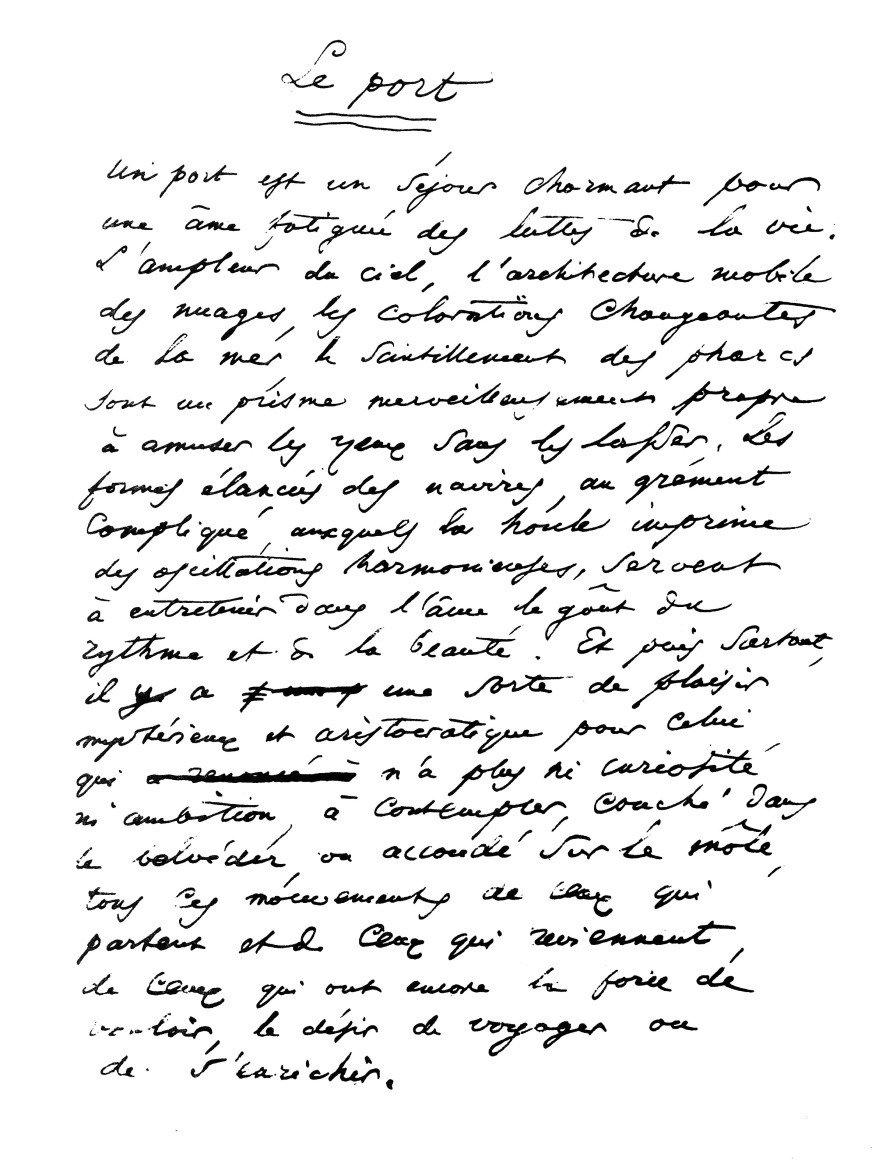 Le port
Un port est un séjour charmant pour
une âme fatiguée des luttes de la vie.
L'ampleur du ciel, l'architecture mobile
des nuages, les colorations changeantes
de la mer, le scintillement des phares
sont un prisme merveilleusement propre
à amuser les yeux sans les lasser. Les
formes élancées des navires, au gréement
compliqué, auxquels la houle imprime
des oscillations harmonieuses, servent
à entretenir dans l'âme le goût du
rythme et de la beauté. Et puis, surtout,
il y a une sorte de plaisir
mystérieux et aristocratique pour celui
qui n'a plus ni curiosité
ni ambition, à contempler, couché dans
le belvédère ou accoudé sur le môle,
tous ces mouvements de ceux qui
partent et de ceux qui reviennent,
de ceux qui ont encore la force de
vouloir, le désir de voyager ou
de s'enrichir.